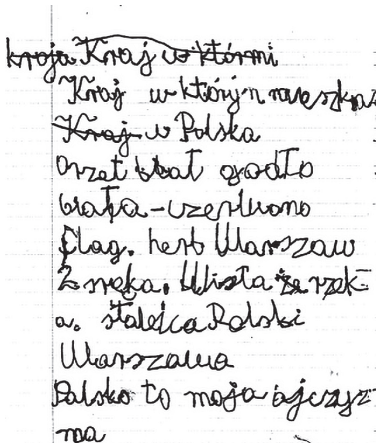 kroja Kraj w którmi
Kraj w którym mieszkaz
Kraj w Polska
orzet bał godło
biała-czerwono
flag. herb Warszaw
Z sręka. Wisła że rzek-
a. stalica Polski
Warszawa
Polsko to moja ojczyz-
na